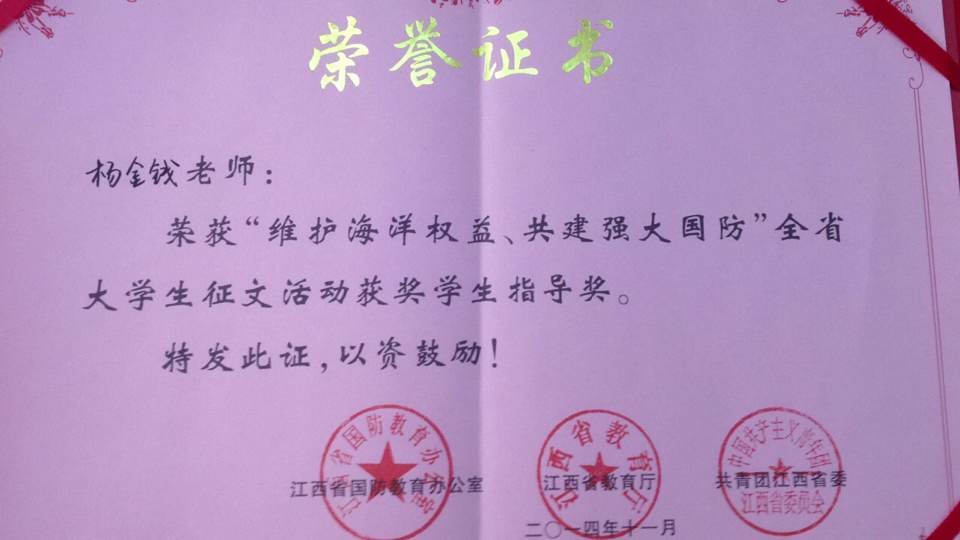 荣誉证书
杨金钱老师：
荣获“维护海洋权益、共建强大国防”全省
大学生征文活动获奖学生指导奖。
特发此证，以资鼓励！
江西省国防教育办公室
江西省教育厅
中国共产主义青年团
江西省委员会
江西省国防教育办公室 江西省教育厅 共青团江西省委
二〇一四年十一月